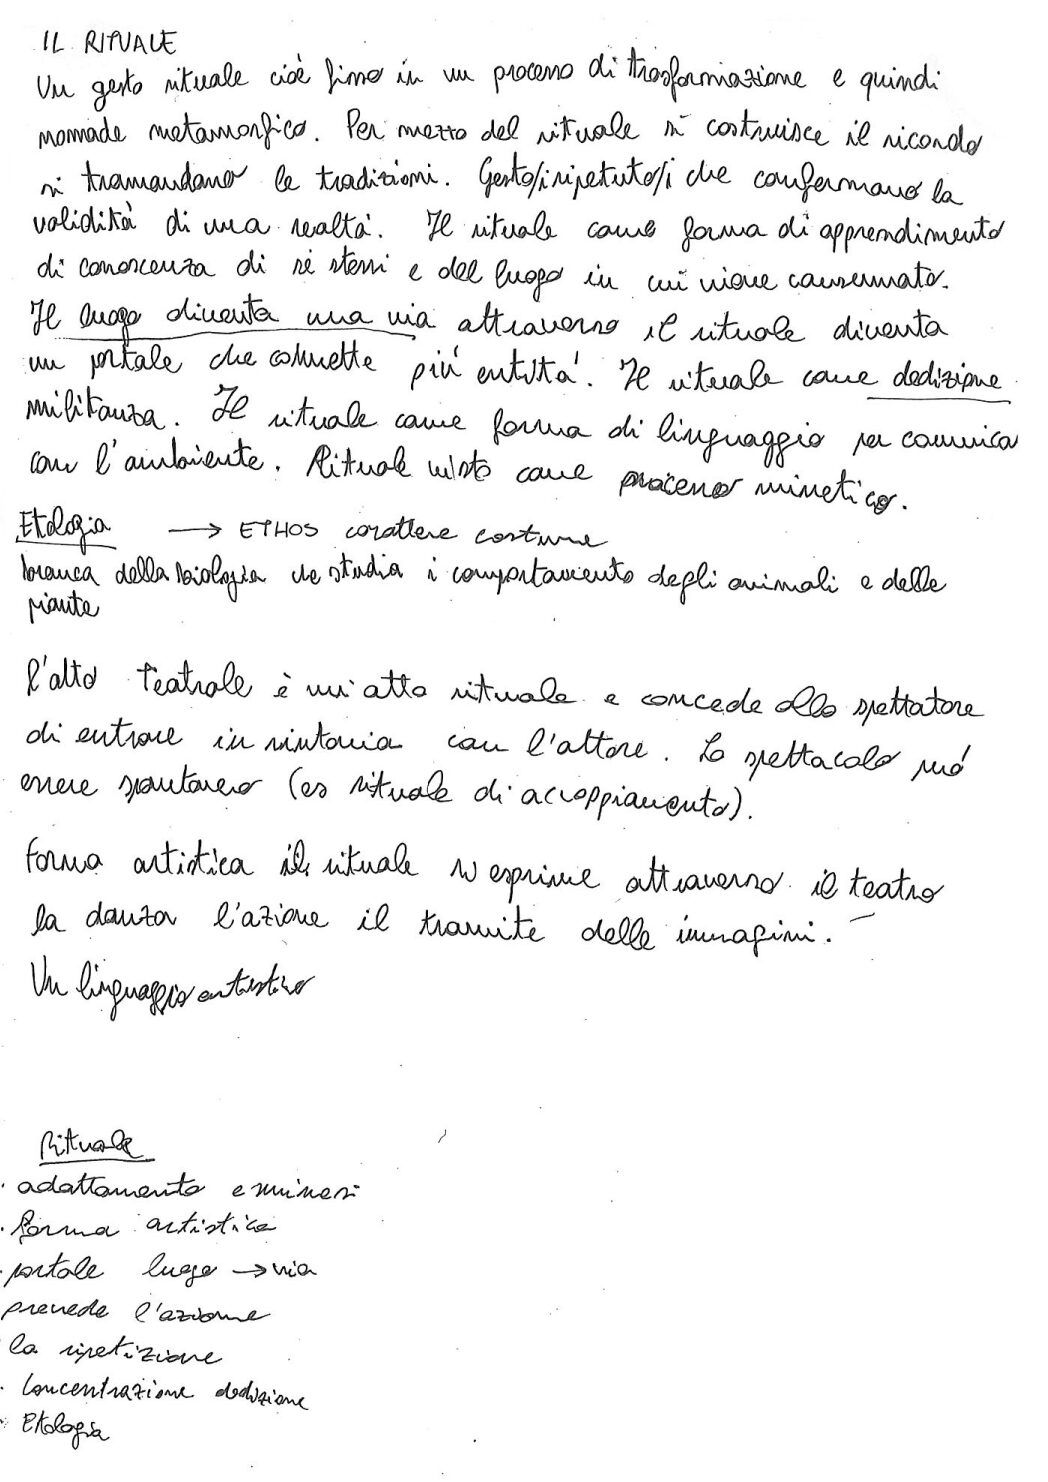 IL RITUALE
Un gesto rituale cioè fisso in un processo di trasformazione e quindi
nomade metamorfico. Per mezzo del rituale si costruisce il ricordo
si tramandano le tradizioni. Gesto/i ripetuto/i che confermano la
validità di una realtà. Il rituale come forma di apprendimento
di conoscenza di sè stessi e del luogo in cui viene consumato.
Il luogo diventa una via attraverso il rituale diventa
un portale che connette più entità. Il rituale come dedizione
militanza. Il rituale come forma di linguaggio per comunica
con l'ambiente. Rituale visto come processo mimetico.
Etologia → ETHOS carattere costume
branca della biologia che studia i comportamento degli animali e delle
piante
L'atto teatrale è un'atto rituale e concede allo spettatore
di entrare in sintonia con l'attore. Lo spettacolo può
essere spontaneo (es rituale di accoppiamento).
forma artistica il rituale si esprime attraverso il teatro
la danza l'azione il tramite delle immagini.
Un linguaggio artistico
Rituale
· adattamento e mimesi
· forma artistica
· portale luogo → via
prevede l'azione
la ripetizione
· Concentrazione dedizione
· Etologia